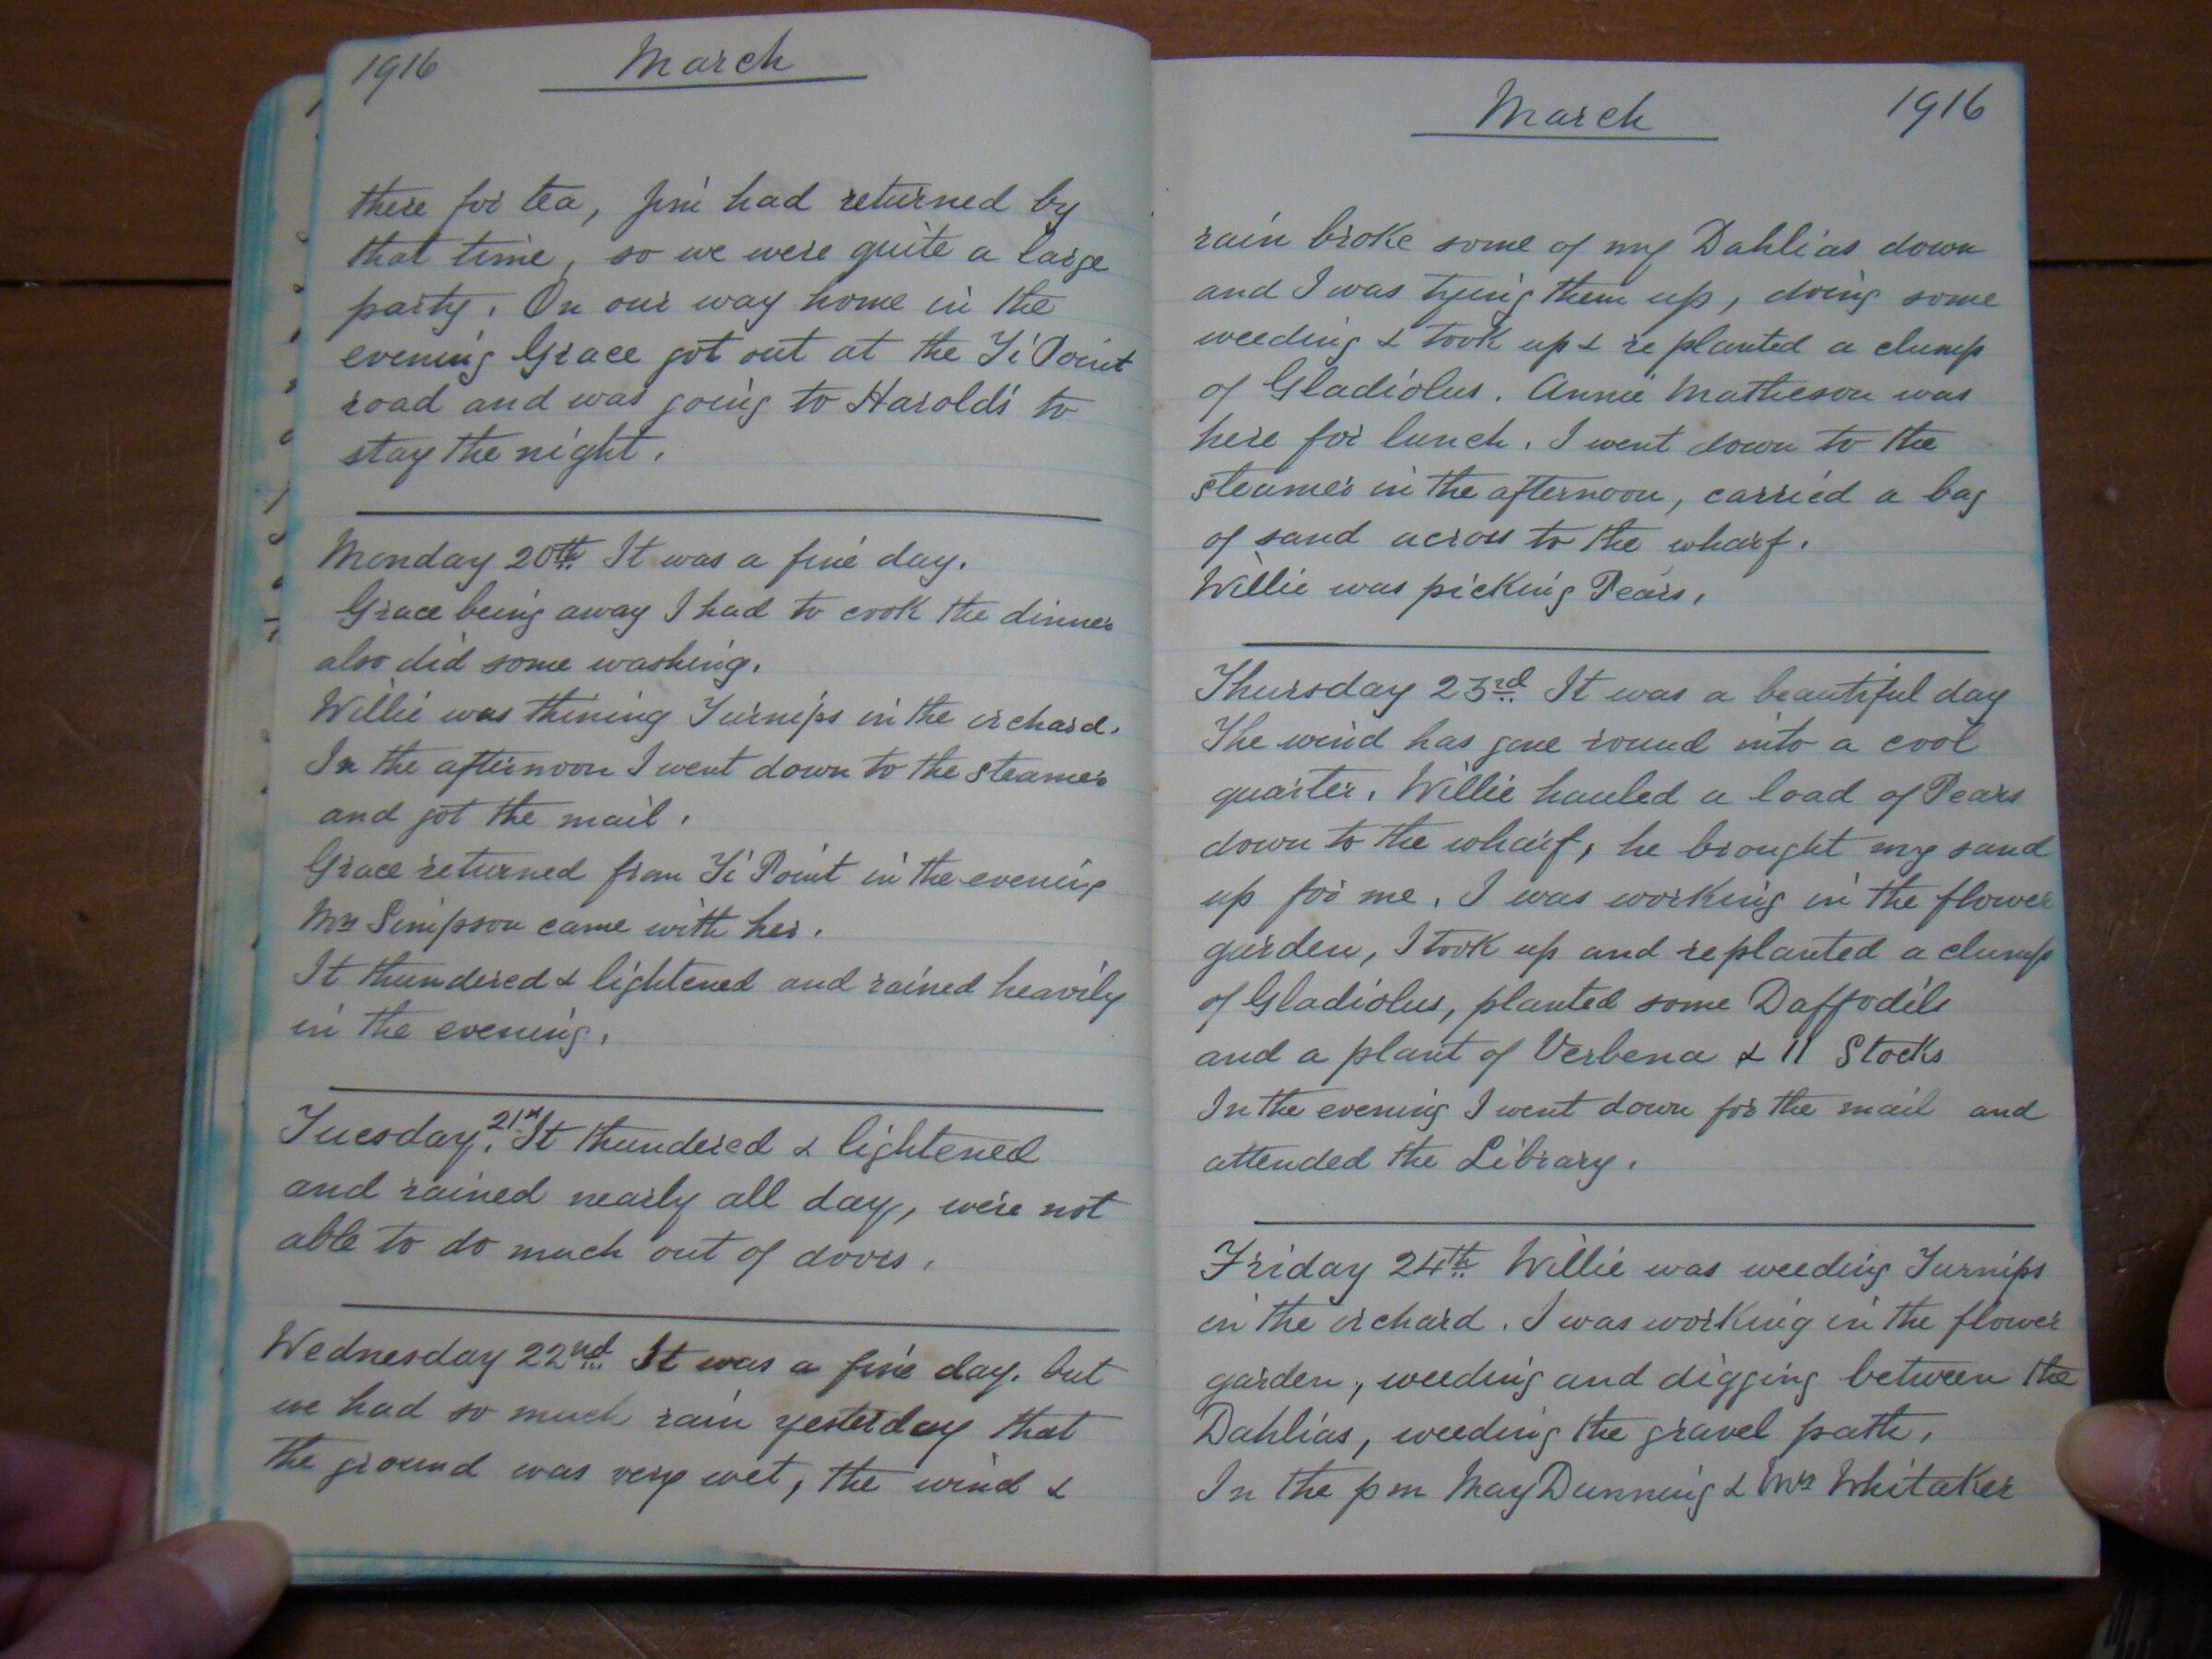 1916 March
there for tea, Jim had returned by
that time, so we were quite a large
party. On our way home in the
evening Grace got out at the Ti Point
road and was going to Harolds to
stay the night.
Monday 20th It was a fine day.
Grace being away I had to cook the dinner
also did some washing.
Willie was thining Turnips in the orchard.
In the afternoon I went down to the steamer
and got the mail.
Grace returned from Ti Point in the evening
Mrs Simpson came with her.
It thundered & lightened and rained heavily
in the evening.
Tuesday 21st. It thundered & lightened
and rained nearly all day, were not
able to do much out of doors.
Wednesday 22nd It was a fine day. but
we had so much rain yesterday that
the ground was very wet, the wind &
March 1916
rain broke some of my Dahlias down
and I was tying them up, doing some
weeding & took up & re planted a clump
of Gladiolus. Annie Matheson was
here for lunch. I went down to the
steamer in the afternoon, carried a bag
of sand across to the wharf.
Willie was picking Pears.
Thursday 23rd It was a beautiful day
The wind has gone round into a cool
quarter. Willie hauled a load of Pears
down to the wharf, he brought my sand
up for me. I was working in the flower
garden, I took up and replanted a clump
of Gladiolus, planted some Daffodils
and a plant of Verbena & 11 Stocks
In the evening I went down for the mail and
attended the Library.
Friday 24th Willie was weeding Turnips
in the orchard. I was working in the flower
garden, weeding and digging between the
Dahlias, weeding the gravel path.
In the pm May Dunning & Mrs Whitaker